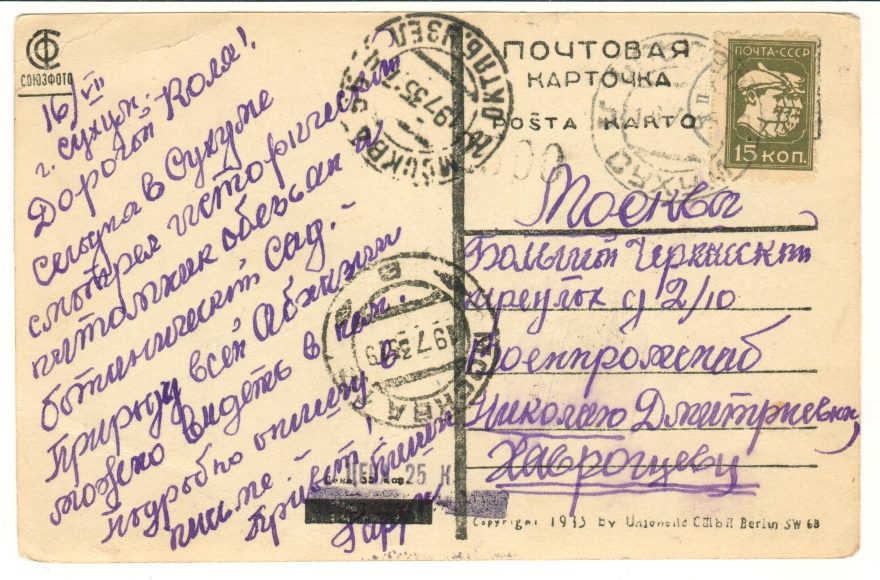 СОЮЗФОТО
16/VII
г. Сухум.
Дорогой Коля!
Сегодня в Сухуме
смотрел исторический
питомник обезьян и
ботанический сад.-
Природу всей Абхазии
можно видеть в нем.
Подробно опишу в
письме.
Привет! пиши
Гарри
ЦЕНА 25 К
ПОЧТОВАЯ
КАРТОЧКА
POŜTA KARTO
ПОЧТА-СССР
15 КОП.
МОСКВА
19.7.35
МОСКВА
19.7.35
Москва
Большой Черкасский
переулок д 2/10
Военпромснаб
Николаю Дмитриевичу
Copyright 1933 by Unionbild Berlin SW 68